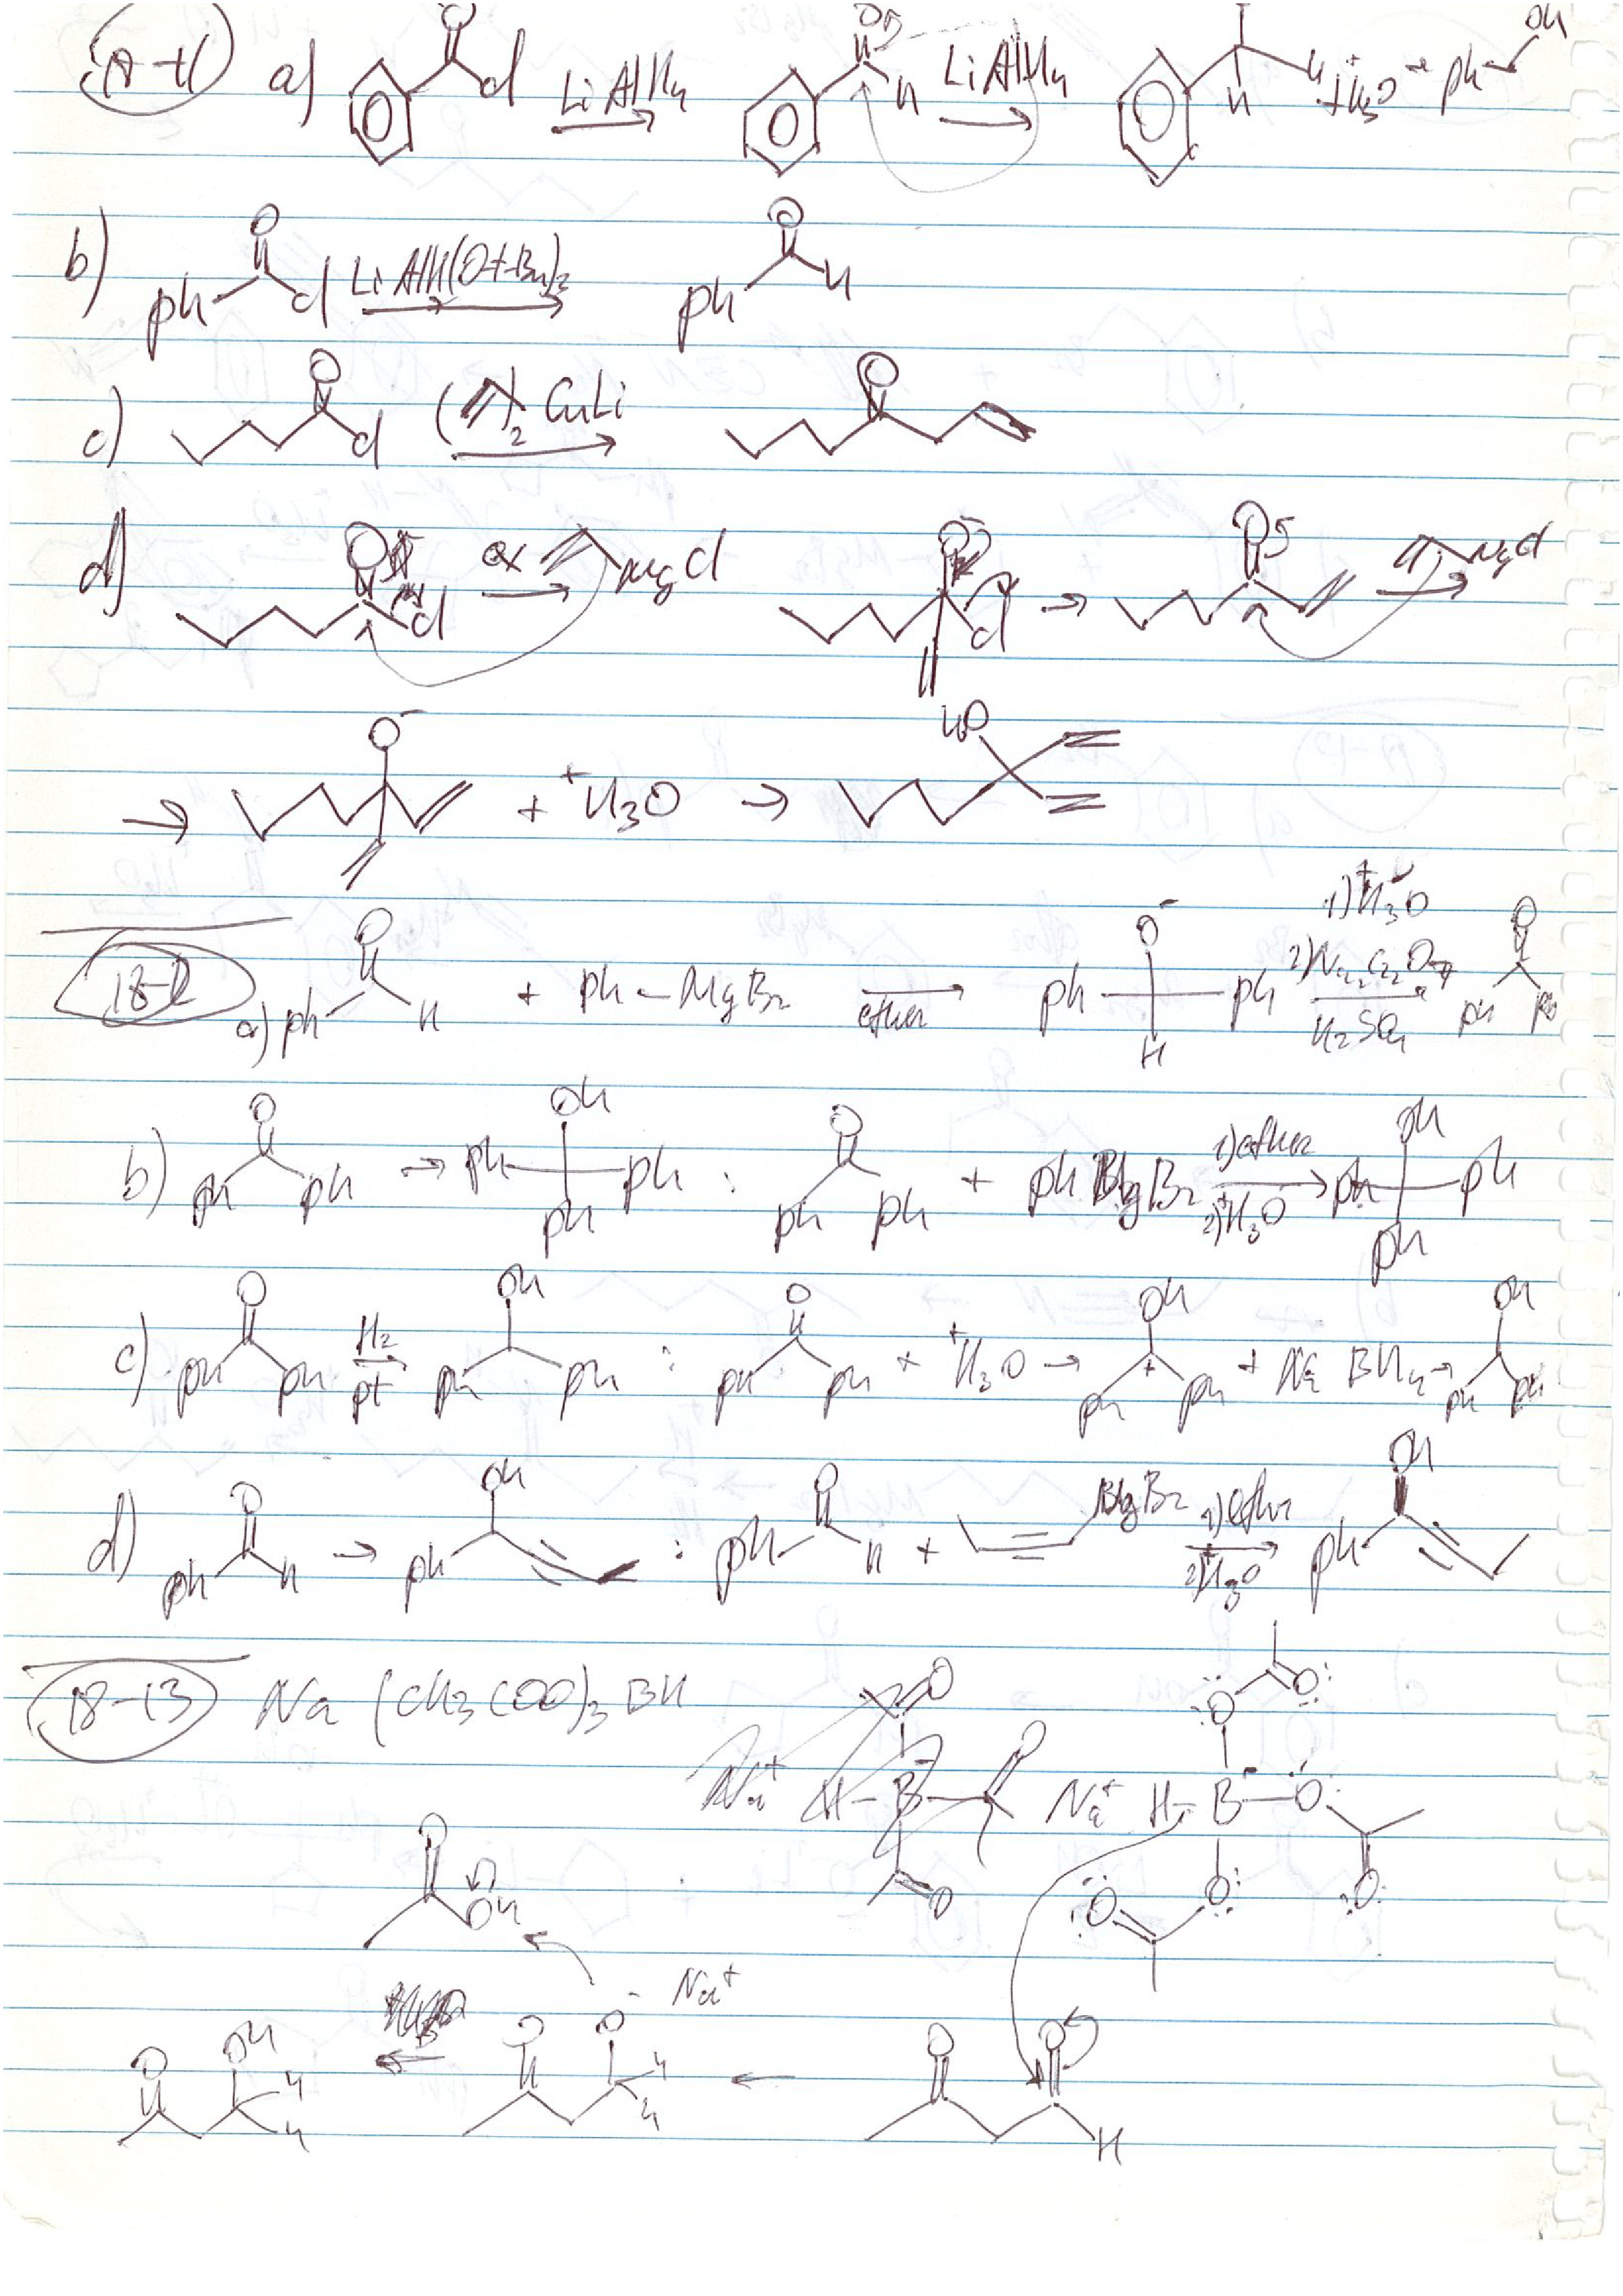 a) O Cl LiAlH4 O H LiAlH4 H H +H3O+ ph OH
b) O ph Cl LiAlH(Ot-Bu)3 O ph H
c) O Cl ( )2 CuLi O
d) O Cl ex MgCl O- Cl O MgCl
O- + +H3O HO
18-12 a) O ph H + ph-MgBr ether O- ph ph H 1) +H3O 2) Na2Cr2O7 H2SO4 O ph ph
b) O ph ph OH ph ph ph : O ph ph + ph MgBr 1) ether 2) +H3O OH ph ph ph
c) O ph ph H2 pt OH ph ph : O ph ph + +H3O OH + ph ph + Na BH4 OH ph ph
d) O ph H OH ph : O ph H + MgBr 1) ether 2) +H3O OH ph
18-13 Na (CH3COO)3 BH
Na+ H-B- O O O Na+ H-B- O O O O O O
O OH
O OH H H O O- Na+ H H O O H